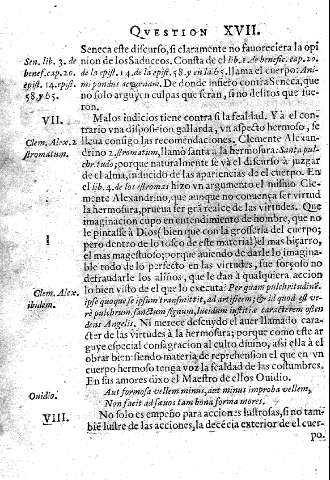 QVESTION XVII.
Seneca este discurso, si claramente no fauoreciera la opi
Sen. lib. 3. de
nion de los Saduceos. Consta de el lib. 1. de benefic. cap. 20.
benef. cap. 20.
de la epist. 14. de la epist. 58. y en la 65. llama el cuerpo: Ani-
epist. 14. epist.
mi pondus
De donde infiero contra Seneca, que
58. y 65.
no solo arguyen culpas que seràn, si no delitos que fue-
ron.
VII.
Malos indicios tiene contra si la fealdad. Y à el con-
trario vna disposicion gallarda, vn aspecto hermoso, se
lleua consigo las recomendaciones. Clemente Alexan-
Clem. Alex. 2
drino 2. stromatum, llamò santa à la hermosura: Santa pul-
stromatum.
chritudo; porque naturalmente se và el discurso à juzgar
de el alma, inducido de las apariencias de el cuerpo. En
el lib. 4. de los
hizo vn argumento el mismo Cle-
mente Alexandrino, que aunque no comença ser virtud
la hermosura, prueua ser gra realce de las virtudes. Que
imaginacion cupo en entendimiento de hombre, que no
le pintasse à Dios (bien que con la grosseria del cuerpo;
pero dentro de lo tosco de esta metal) el mas bizarro,
el mas magestuoso; porque auiendo de darle lo imagina-
ble todo de lo perfecto en las virtudes, fue forçoso no
defraudarle los aliños, que le dan à qualquiera accion
Clem. Alex.
lo bien visto de el que lo executa: Per quam pulchritudinē
ibidem.
ipse quoque se ipsum transmittit, ad artificem; & id quod est ve-
rè pulchrum, sanctum signum, lucidum iustitiæ caracterem osten
dens Angelis. Ni merece desnydo el auer llamado carac-
ter de las virtudes à la hermosura; porque como este ar
guye especial consagracion al culto diuino, assi ella à el
obrar bien: siendo materia de reprehension el que en vn
cuerpo hermoso tenga voz la fealdad de las costumbres.
En sus amores dixo el Maestro de ellos Ouidio.
Aut formosa vellem minus, aut minus improba vellem,
Ouidio.
Non facit ad
tam bona forma mores.
VIII.
No solo es empeño para acciones lustrosas, si no tam
biē lustre de las acciones, la decēcia exterior de el cuer-
po.